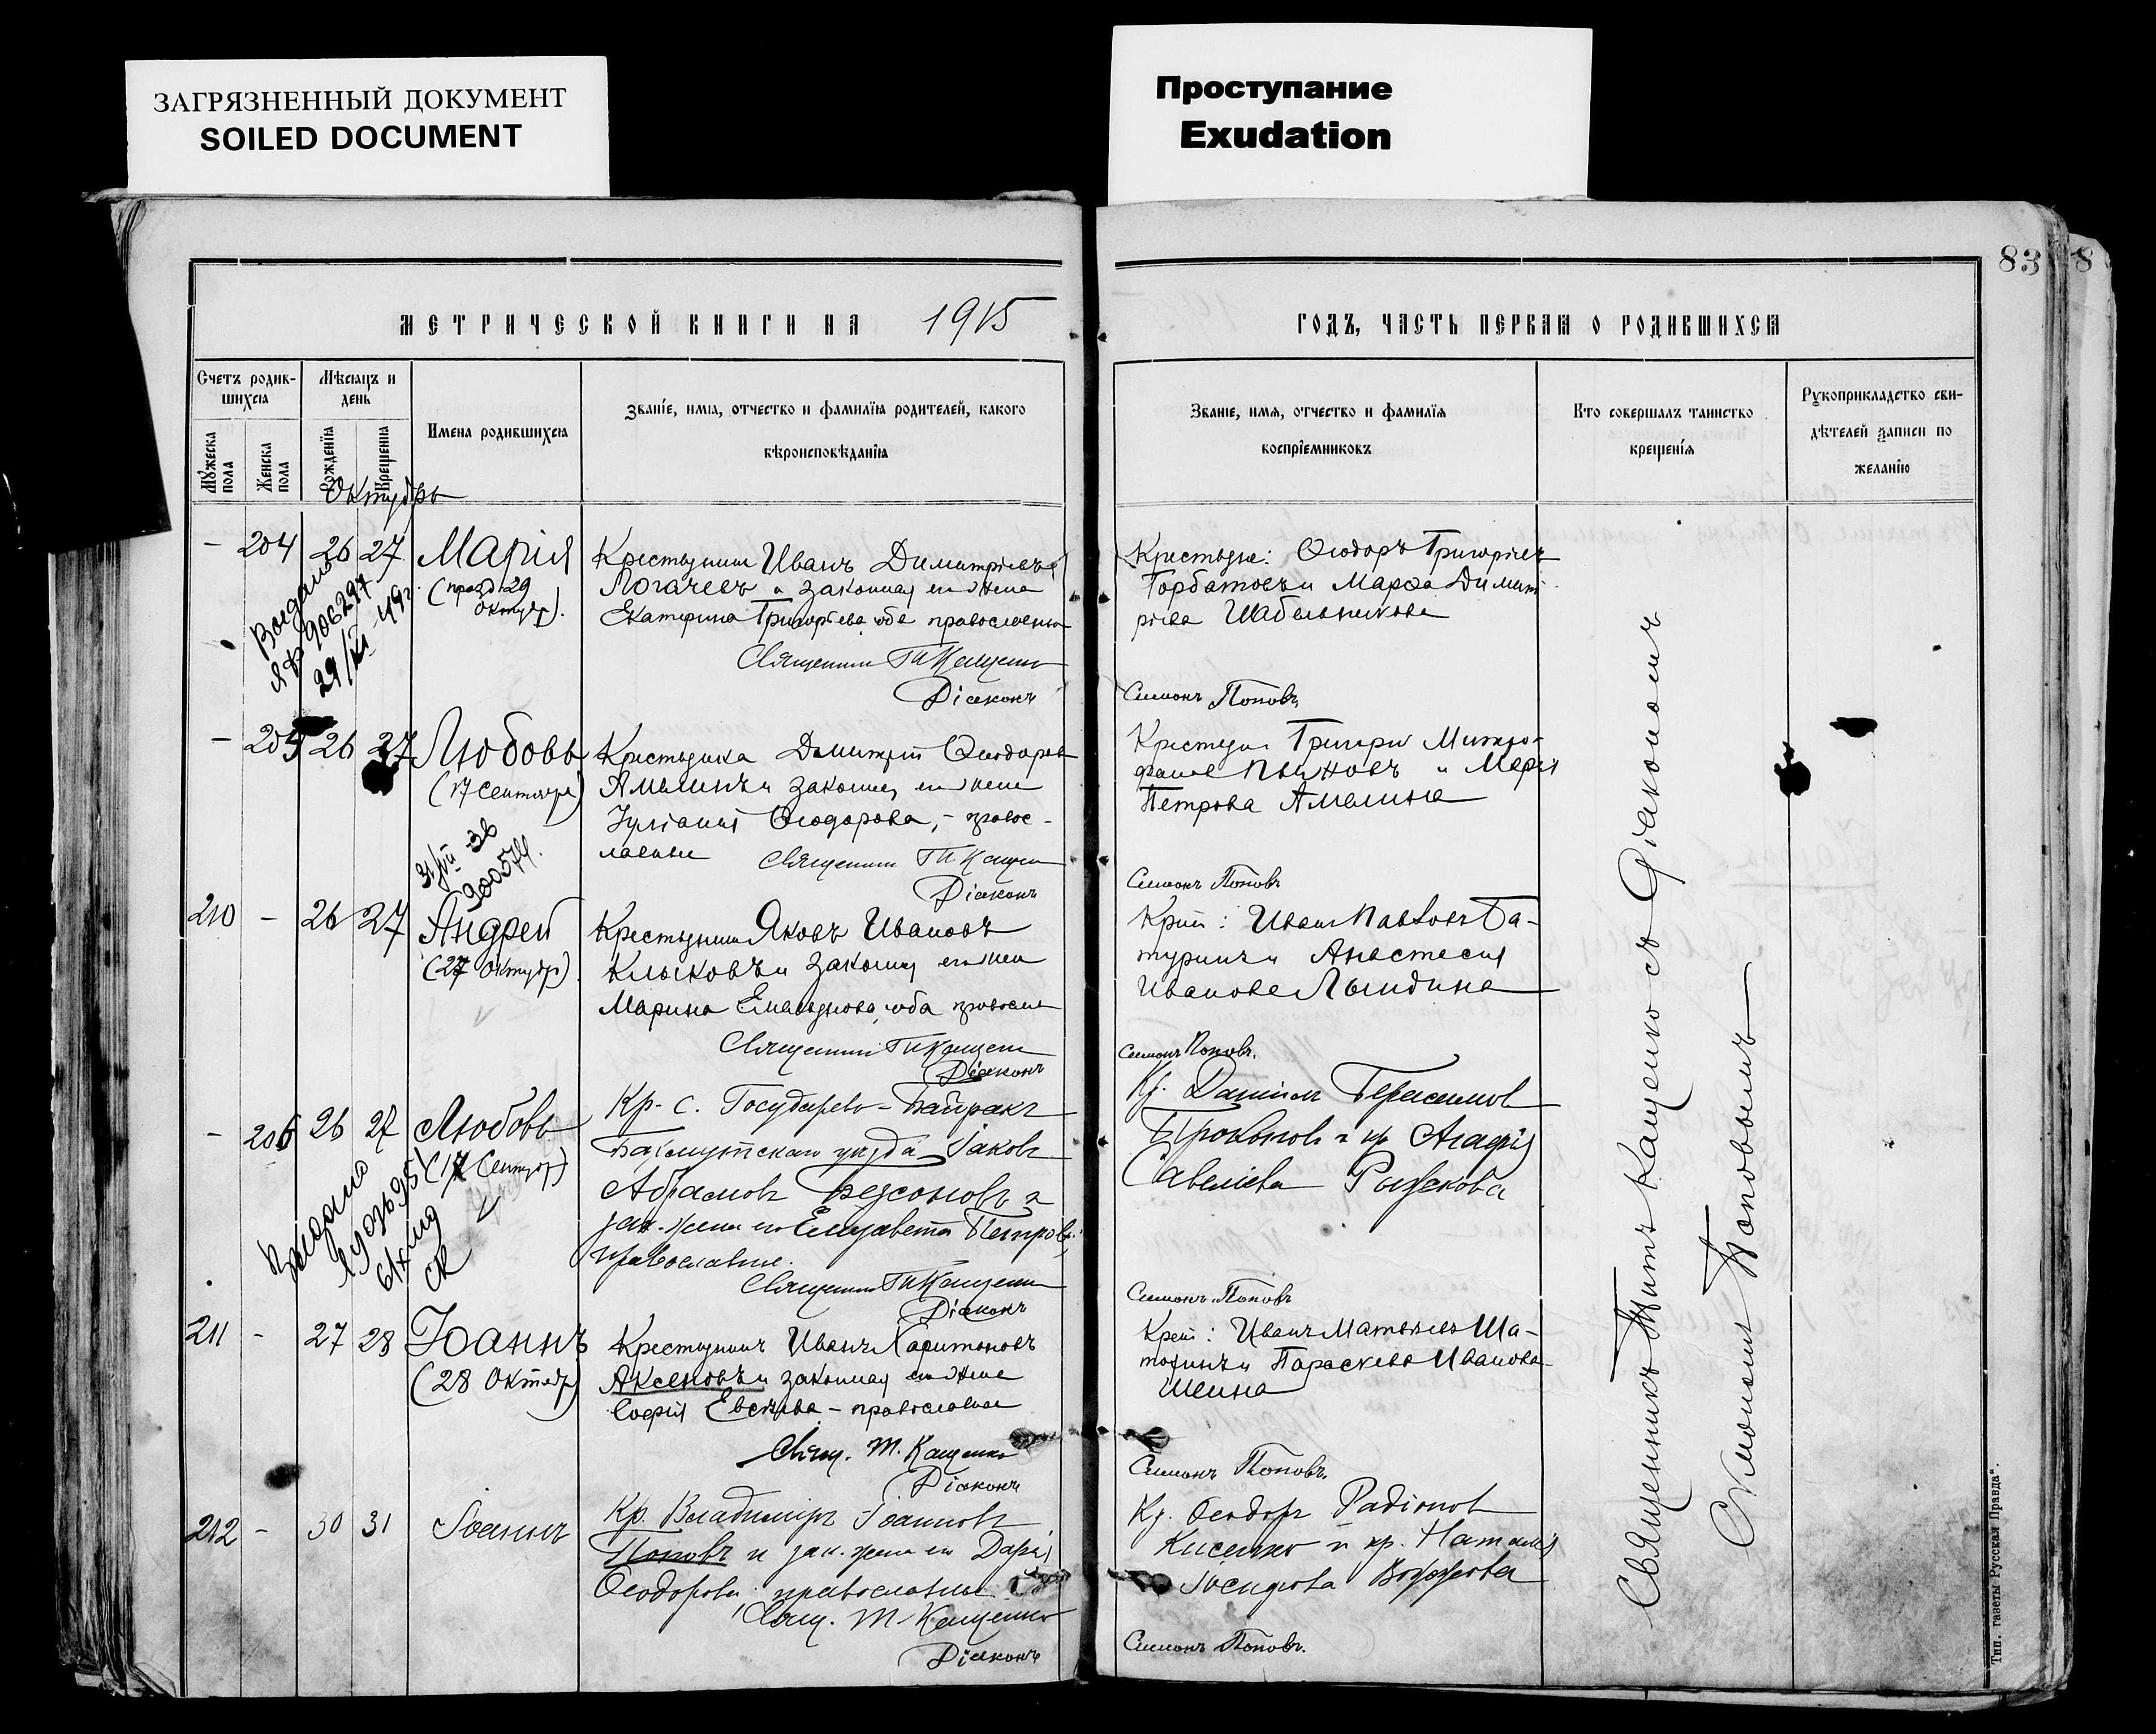 ЗАГРЯЗНЕННЫЙ ДОКУМЕНТ
SOILED DOCUMENT
Проступание
Exudation
83
8
МЕТРИЧЕСКОЙ КНИГИ НА 1915
ГОДЪ, ЧАСТЬ ПЕРВАЯ О РОДИВШИХСЯ
Счетъ родив-
шихся
Мѣсяцъ и
день
Мужеска
пола
Женска
пола
Рожденія
Крещенія
Имена родившихся
Званіе, имя, отчество и фамилія родителей, какого
вѣроисповѣданія
Званіе, имя, отчество и фамилія
воспріемниковъ
Кто совершалъ таинство
крещенія
Рукоприкладство сви-
дѣтелей записи по
желанію
Октябрь
- 204 26 27 Марія
29
Крестьянинъ Иванъ Димитріевъ
Логачевъ и законная его жена
Екатерина Григорьева, оба православны
Священникъ Т. Кащенко
Діаконъ
Крестьяне: Ѳеодоръ Григорьев
Горбатовъ и Марѳа Димит
ріева Шабельникова
Симонъ Поповъ
29/XI - 49г.
- 205 26 27 Любовь
(17 Сентября)
Димитрій Ѳеодоров
Амелинъ и законная его жена
Іуліанія Ѳеодорова, - правос-
лавные
Священникъ Т. Кащенко
Діаконъ
Григорій Митро-
и Марія
Петрова Амелина
Симонъ Поповъ
31/VII - 36
210 - 26 27 Андрей
(27 Октября)
Крестьянинъ Яковъ Ивановъ
Клыковъ и законная его жена
Марина Емельянова, оба православны
Священникъ Т. Кащенко
Діаконъ
Крест: Иванъ Павловъ Ба-
туринъ и Анастасия
Иванова Лындина
Симонъ Поповъ.
- 206 26 27 Любовь
(17 Сентября)
Кр. с. Государево-Байракъ
Бахмутскаго уѣзда Іаковъ
Абрамовъ и
зак. жена его Елизавета Петрова
православные.
Священникъ Т. Кащенко
Діаконъ
Кр. Даніилъ Герасимов
и кр. Агафія
Савеліева Рыжкова
Симонъ Поповъ
211 - 27 28 Іоаннъ
(28 Октября)
Крестьянинъ Иванъ Харитоновъ
Аксеновъ и законная его жена
Софія - православные
Свящ. Т. Кащенко
Діаконъ
Крест: Иванъ Матвѣевъ Ша-
и Параскева Иванова
Шеина
Симонъ Поповъ.
212 - 30 31 Іоаннъ
Кр. Владиміръ Іоанновъ
Поповъ и зак. жена его Дарія
Ѳеодорова, православные
Свящ. Т. Кащенко
Діаконъ
Кр. Ѳеодоръ Радіонов
Киселко и кр. Наталія
Симонъ Поповъ.
Священникъ Титъ Кащенко съ Діакономъ
Симономъ Поповымъ
Тип. газеты „Русская Правда“.